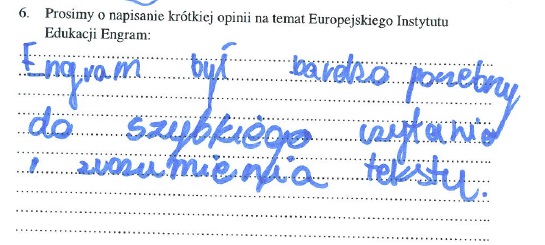 6. Prosimy o napisanie krótkiej opinii na temat Europejskiego Instytutu
Edukacji Engram:
Engram był bardzo potrzebny
do szybkiego czytania
i zrozumienia tekstu.